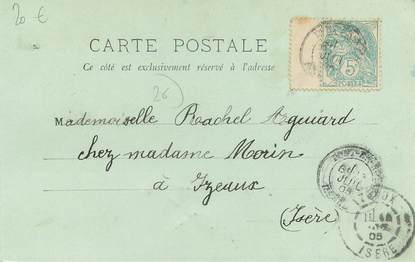 20 €
CARTE POSTALE
Ce côté est exclusivement réservé à l'adresse
26
Mademoiselle Rachel Aguiard
chez madame Morin
à Izeaux
(Isère)
5
ISÈRE
05